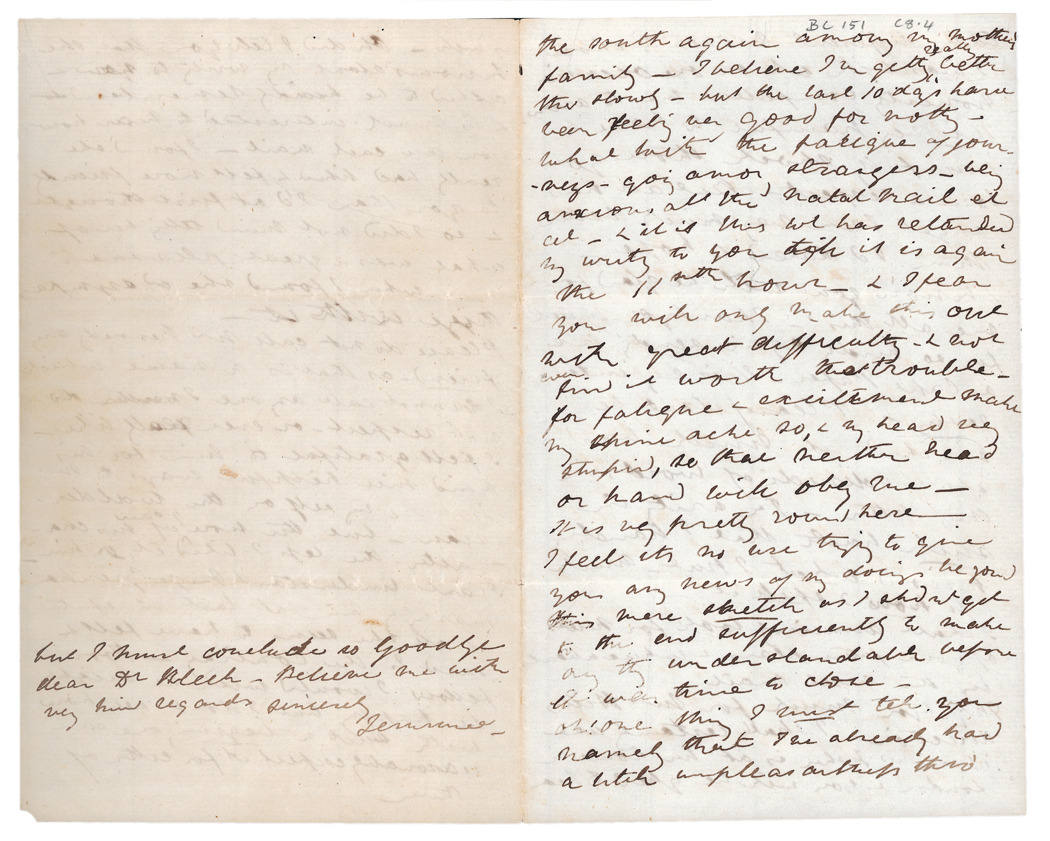 but I must conclude so Goodbye
dear Dr Bleek - Believe me with
very kind regards sincerely
Jemima -
BC 151 C8.4
the south again among my mother's
really
family - I believe I'm getting better
tho slowly - but the last 10 days have
been feeling very good for nothg -
what with the fatigue of jour-
-neys - going among strangers - being
anxious abt the Natal mail et
cet - & it is this wh has retarded
my writg to you till it is again
the 11nth hour - & I fear
you will only make this out
with great difficulty - & not
even
find it worth the trouble -
for fatigue & excitement make
my spine ache so, & my head very
stupid, so that neither head
or hand will obey me -
It is very pretty round here -
I feel its no use tryg to give
you any news of my doings beyond
this mere sketch as I shdn't get
to the end sufficiently to make
any thg understandable before
it was time to close -
oh! one thing I must tell you
namely that I've already had
a little unpleasantness thro'